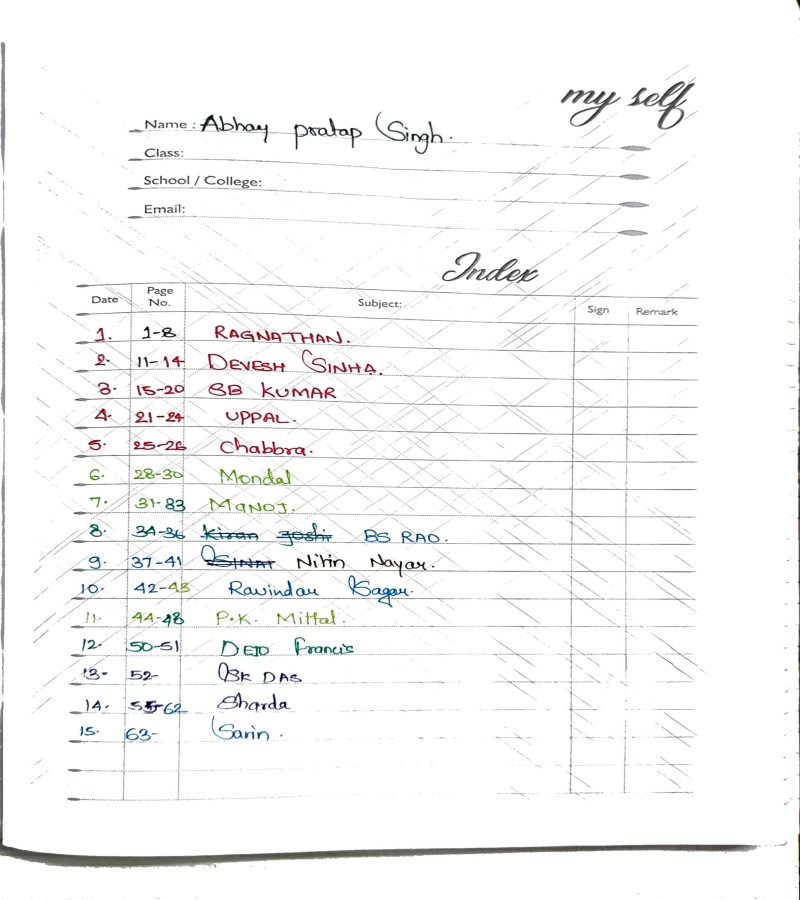 my self
Name: Abhay pratap Singh.
Class:
School / College:
Email:
Index
Date Page No. Subject: Sign Remark
1. 1-8 RAGNATHAN.
2. 11-14 DEVESH SINHA.
3. 15-20 BB KUMAR
4. 21-24 UPPAL.
5. 25-26 Chabbra.
6. 28-30 Mondal
7. 31-33 MANOJ.
8. 34-36 kiran joshi BS RAO.
9. 37-41 Nitin Nayar.
10. 42-43 Ravindar Sagar.
11. 44-48 P.K. Mittal.
12. 50-51 DEJO Francis
13- 52- SK DAS
14. 55-62 Sharda
15. 63- Sarin.